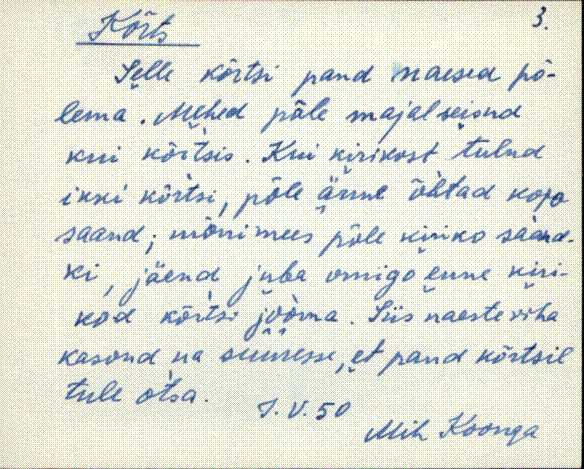 3.
Kõrts
Selle kõrtsi pand naesed põ-
lema. Mehed põle majal seisnd
kui kõrtsis. Kui kirikost tulnd
ikki kõrtsi, põle änne õhtad kojo
saand; mõni mees põle kiriko säänd-
ki, jäend juba omigo enne kiri-
kod kõrtsi jooma. Siis naeste viha
kasond na suuresse, et pand kõrtsil
tule otsa.
J.V. 50
Mih Koonga